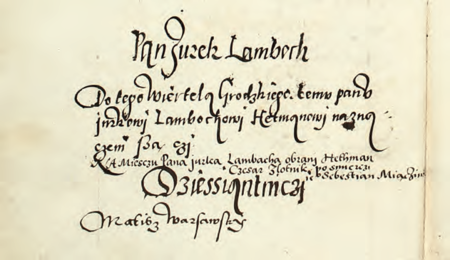 Pan Jurek Lambech
Do tego Wiertela Grodzkiego. temu panu
jurkowi Lambochowi Hetmanowi nazna
czeni są czi
Na Miesczu Pana jurka Lambacha obrani Hethman
Czesar Złotnik, po śmierczi
Sebestian
Dziessiąntniczi
Matisz Warsawsky